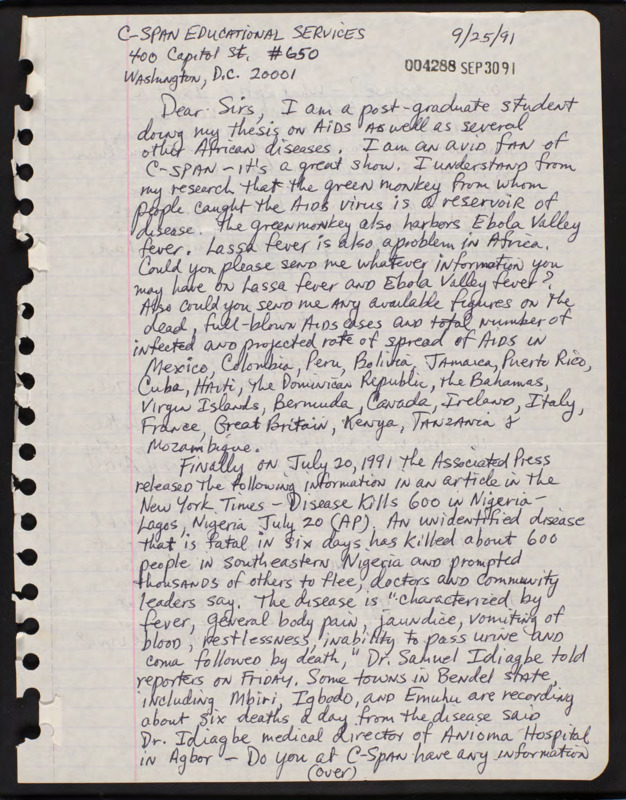 C-SPAN EDUCATIONAL SERVICES 9/25/91
400 Capitol St. #650
Washington, D.C. 20001
004288 SEP 30 91
Dear Sirs, I am a post-graduate student
doing my thesis on AIDS as well as several
other African diseases. I am an avid fan of
C-SPAN - it's a great show. I understand from
my research that the green monkey from whom
people caught the AIDS virus is a reservoir of
disease. The green monkey also harbors Ebola Valley
fever. Lassa fever is also a problem in Africa.
Could you please send me whatever information you
may have on Lassa fever and Ebola Valley fever?
Also could you send me any available figures on the
dead, full-blown AIDS cases and total number of
infected and projected rate of spread of AIDS in
Mexico, Colombia, Peru, Bolivia, Jamaica, Puerto Rico,
Cuba, Haiti, the Dominican Republic, the Bahamas,
Virgin Islands, Bermuda, Canada, Ireland, Italy,
France, Great Britain, Kenya, Tanzania &
Mozambique.
Finally on July 20, 1991 the Associated Press
released the following information in an article in the
New York Times - Disease Kills 600 in Nigeria -
Lagos, Nigeria July 20 (AP). An unidentified disease
that is fatal in six days has killed about 600
people in southeastern Nigeria and prompted
thousands of others to flee, doctors and community
leaders say. The disease is "characterized by
fever, general body pain, jaundice, vomiting of
blood, restlessness, inability to pass urine and
coma followed by death," Dr. Samuel Idiagbe told
reporters on Friday. Some towns in Bendel state,
including Mbiri, Igbodo, and Emuhu are recording
about six deaths a day from the disease said
Dr. Idiagbe medical director of Anioma Hospital
in Agbor - Do you at C-SPAN have any information
(over)